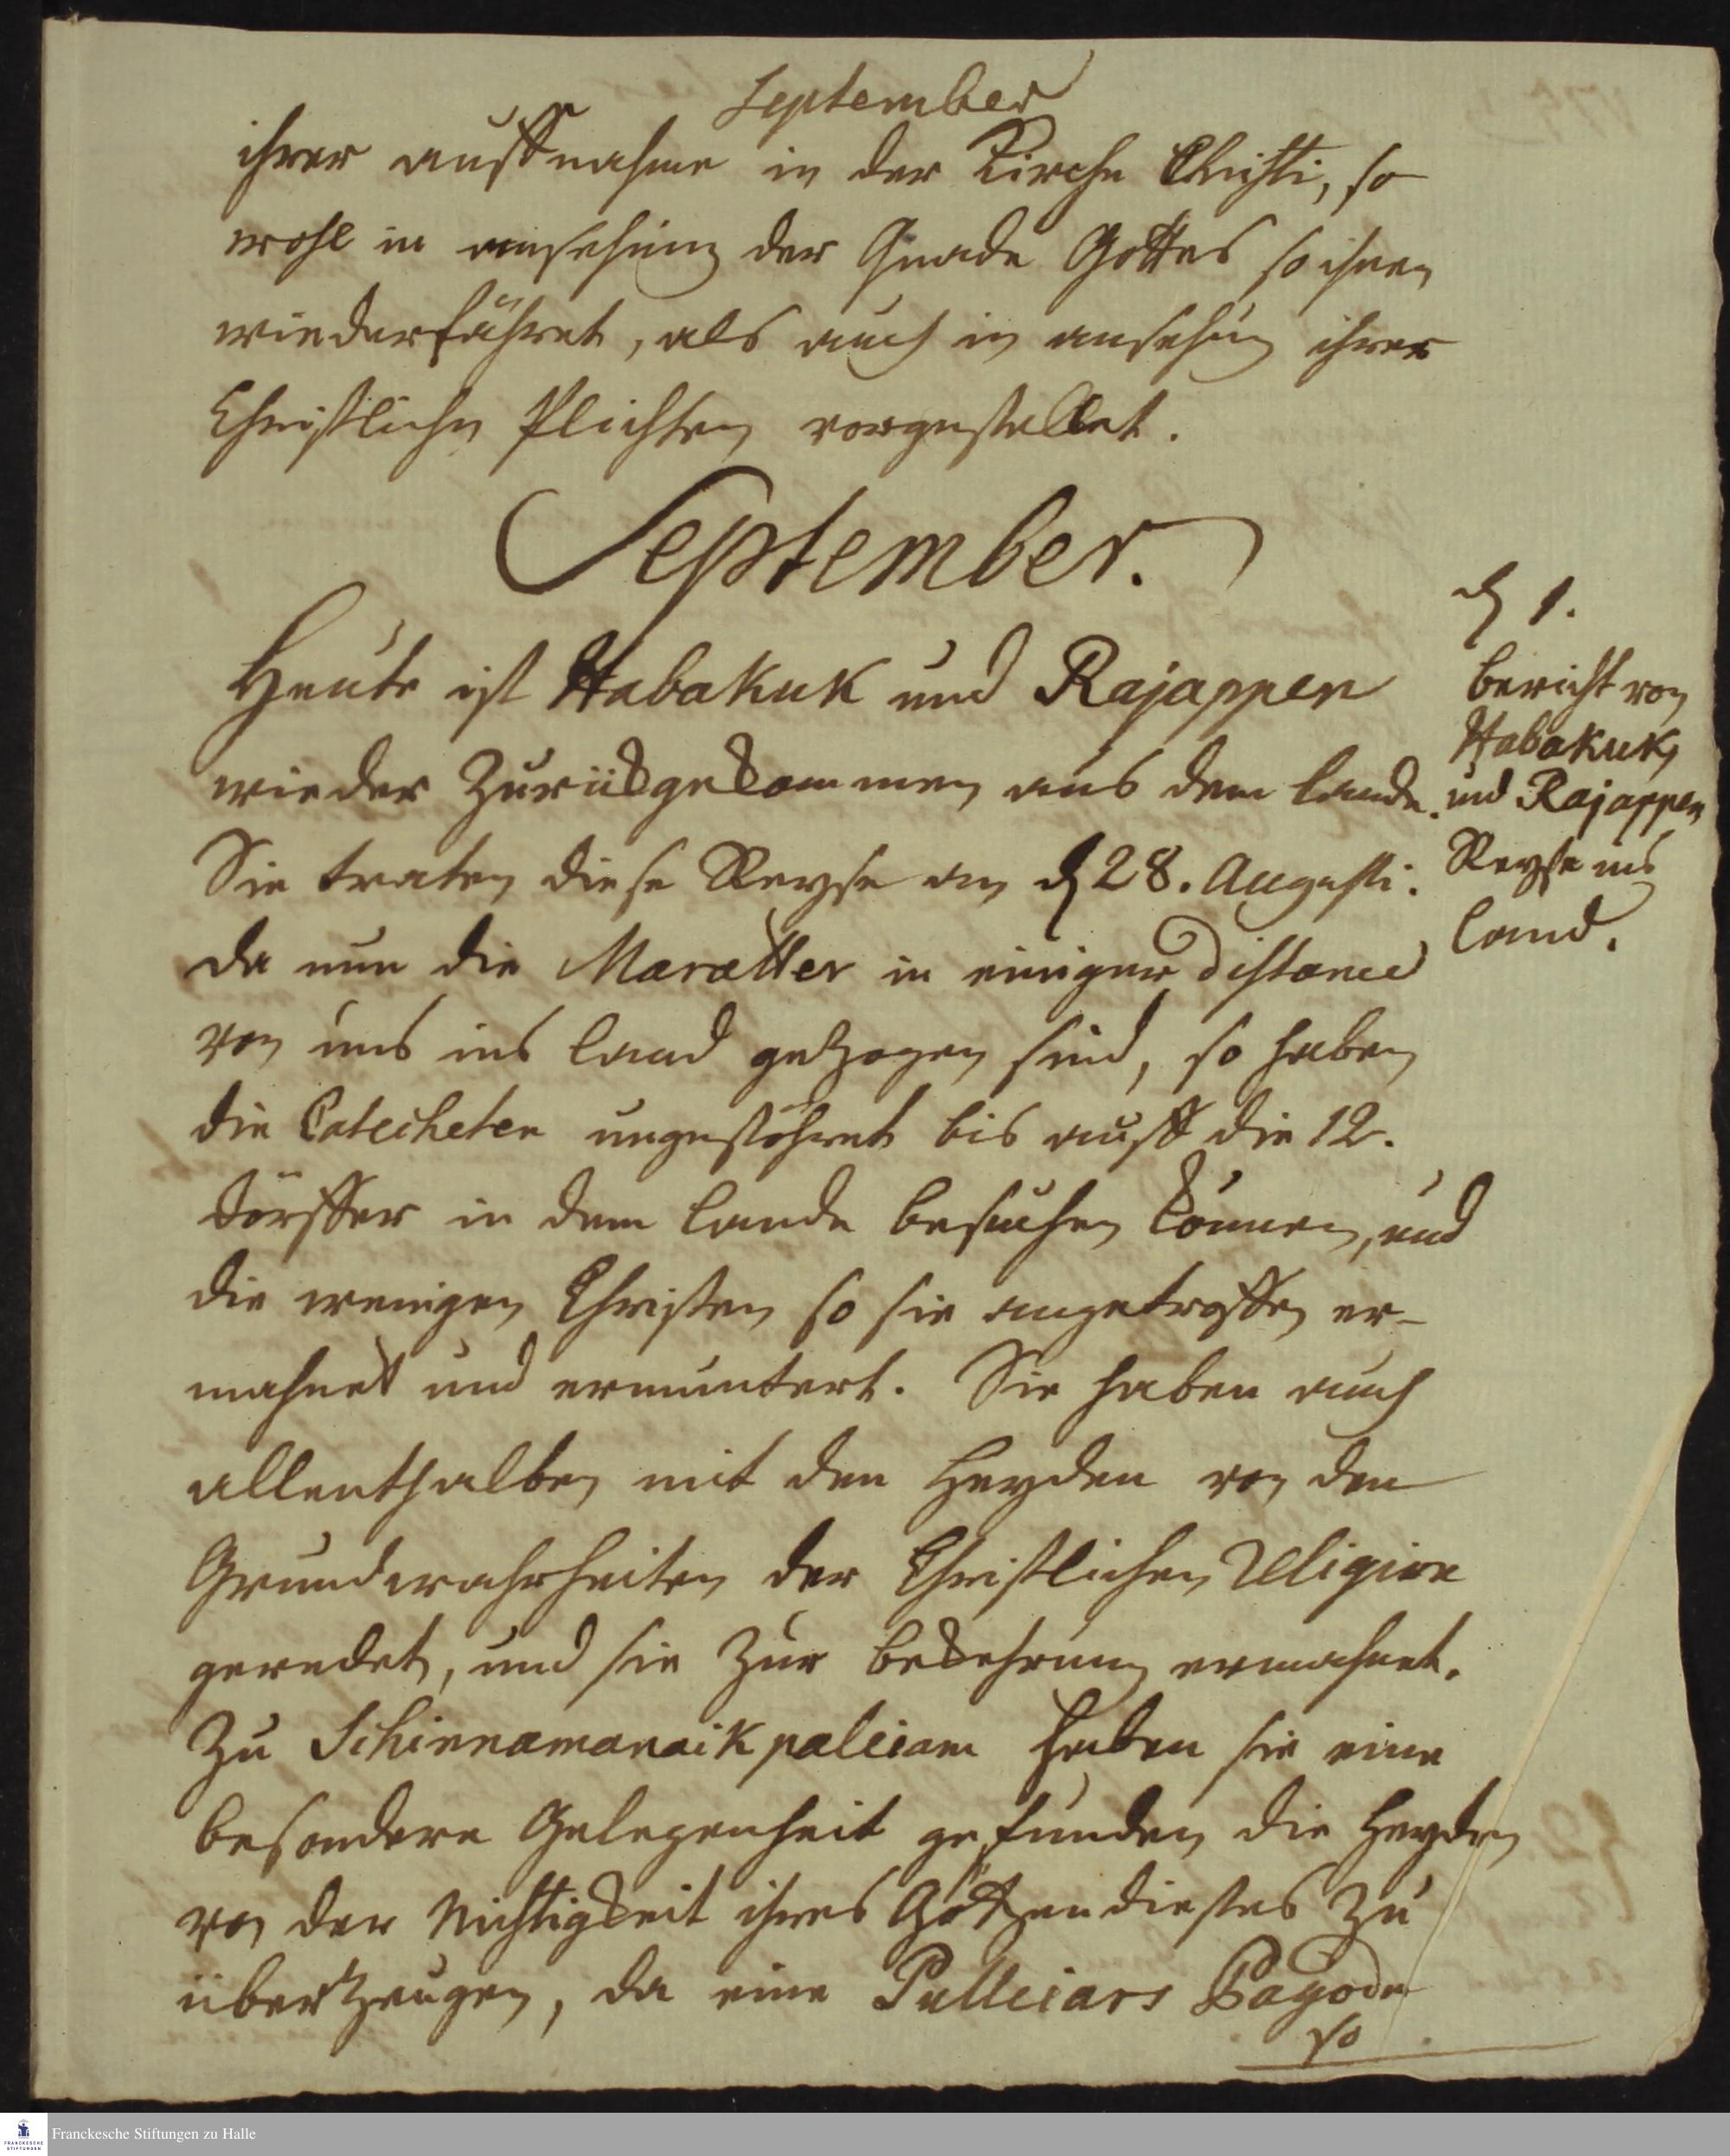 September
ihrer auffnahme in der Kirche Christi, so
wohl in ansehung der Gnade Gottes so ihnen
wiederfähret, als auch in ansehung ihrer
Christlichen Plichten vorgestellet.
September.
Heute ist Habakuk und Rajappen
wieder zurükgekommen aus dem lande.
Sie traten diese Reyse an den 28. Augusti.
da nun die Maratter in einiger distance
von uns ins land gezogen sind, so haben
die Catecheten ungestöhret bis auff die 12.
dörffer in dem lande besuchen können, und
die wenigen Christen so sie angetroffen er-
mahnet und ermuntert. Sie haben auch
allenthalben mit den Heyden von den
Grundwahrheiten der Christlichen Religion
geredet, und sie zur bekehrung ermahnet.
Zu Schinnamanaik paleiam haben sie eine
besondere Gelegenheit gefunden die Heyden
von der Nichtigkeit ihres Götzendiestes zu
überzeugen, da eine Pulleiars Pagode
so
den 1.
bericht von
Habakuk,
und Rajappen
Reyse ins
land.
Franckesche Stiftungen zu Halle
FRANCKESCHE
STIFTUNGEN